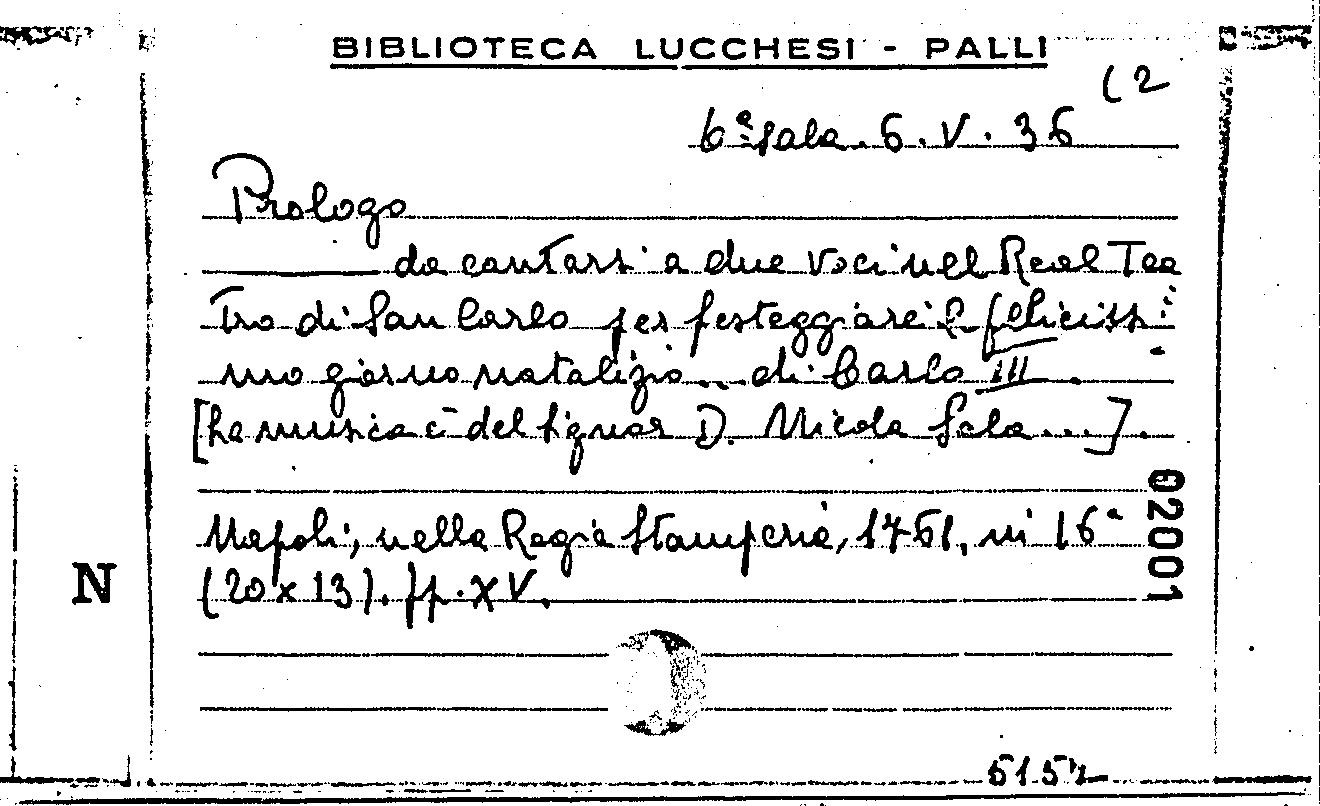 BIBLIOTECA LUCCHESI - PALLI
(2
6ª Sala. 6. V. 36
Prologo
da cantarsi a due voci nel Real Tea
tro di San Carlo per festeggiare il felicissi
mo giorno natalizio... di Carlo III.
[La musica è del Signor D. Nicola Sala...].
Napoli, nella Regia Stamperia, 1761, in 16°
(20 x 13). pp. XV.
02001
N